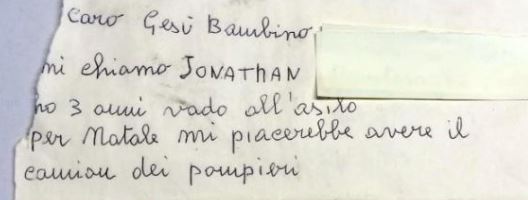 Caro Gesù Bambino,
mi chiamo JONATHAN
ho 3 anni vado all'asilo
per Natale mi piacerebbe avere il
camion dei pompieri